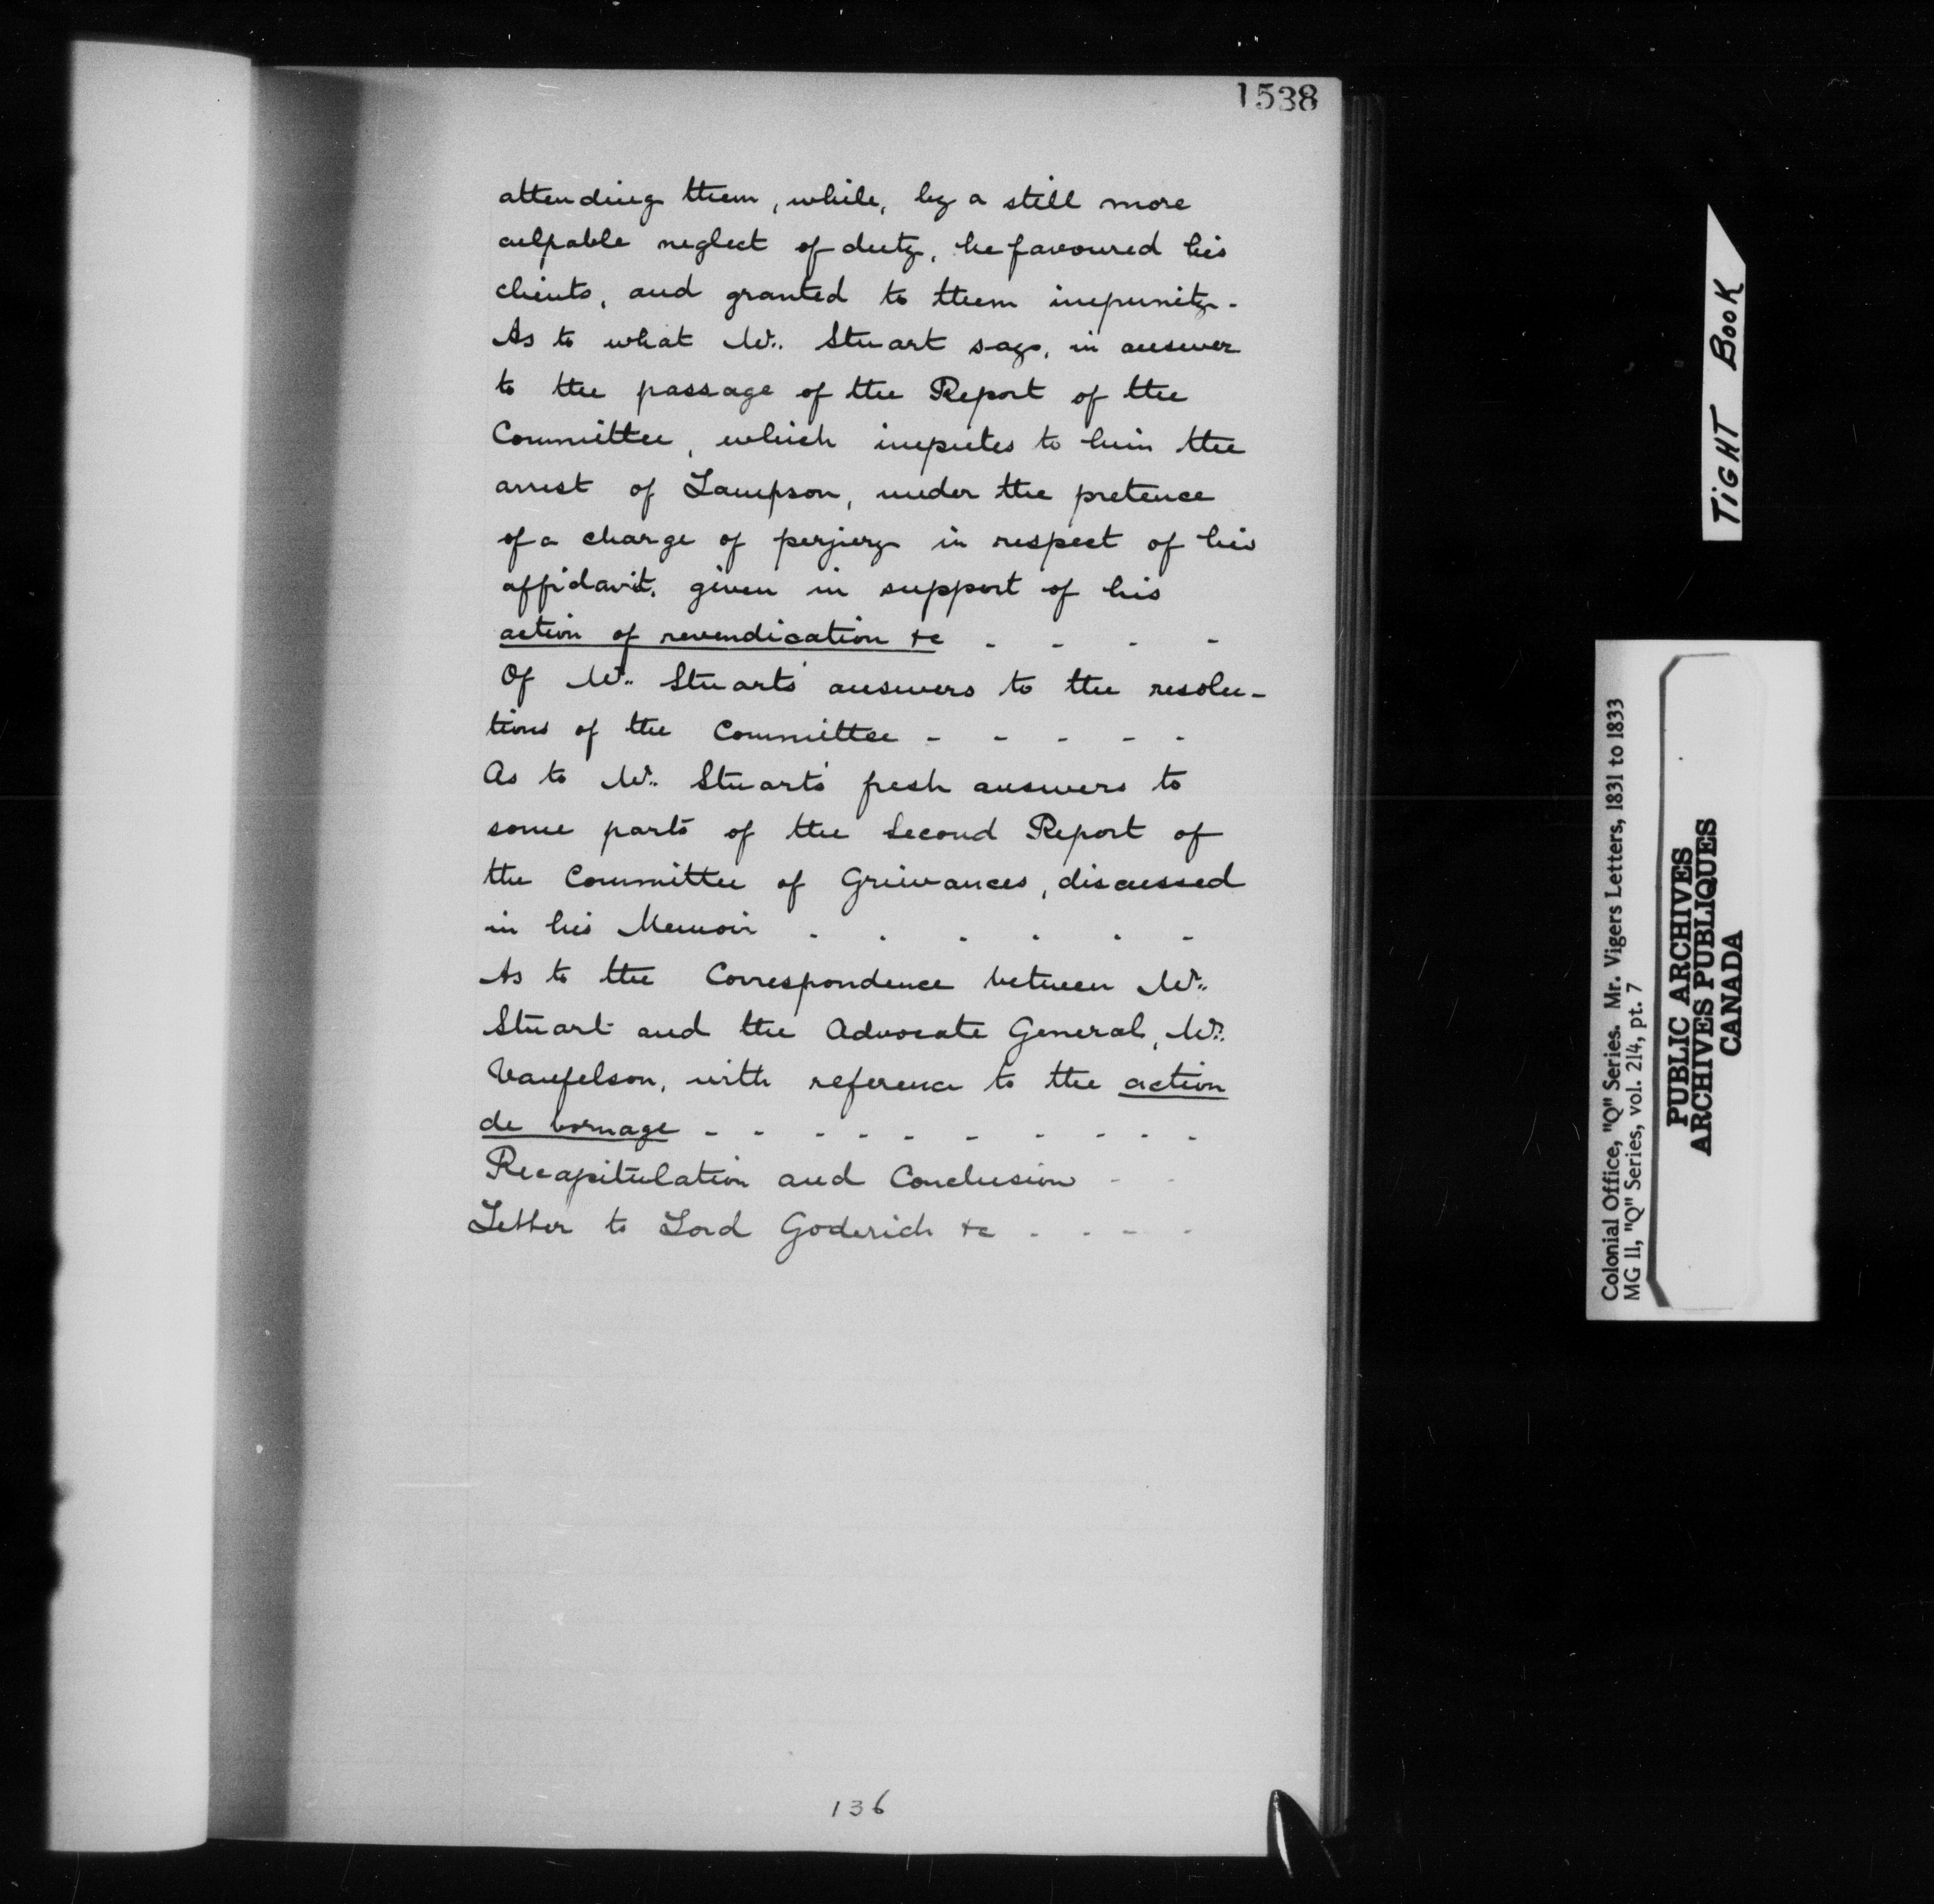 1538
attending them, while, by a still more
culpable neglect of duty, he favoured his
clients, and granted to them impunity -
As to what Mr. Stuart says, in answer
to the passage of the Report of the
Committee, which imputes to him the
arrest of Lampson, under the pretence
of a charge of perjury in respect of his
affidavit, given in support of his
action of revendication &c - - - -
Of Mr. Stuart's answers to the resolu-
tions of the Committee - - - - -
As to Mr. Stuart's fresh answers to
some parts of the Second Report of
the Committee of Grievances, discussed
in his Memoir - - - - - -
As to the Correspondence between Mr.
Stuart and the Advocate General, Mr.
Vanfelson, with reference to the action
de bornage - - - - - - - - - -
Recapitulation and Conclusion - -
Letter to Lord Goderich &c - - - -
136
TIGHT BOOK
Colonial Office, "Q" Series. Mr. Vigers Letters, 1831 to 1833
MG 11, "Q" Series, vol. 214, pt. 7
PUBLIC ARCHIVES
ARCHIVES PUBLIQUES
CANADA